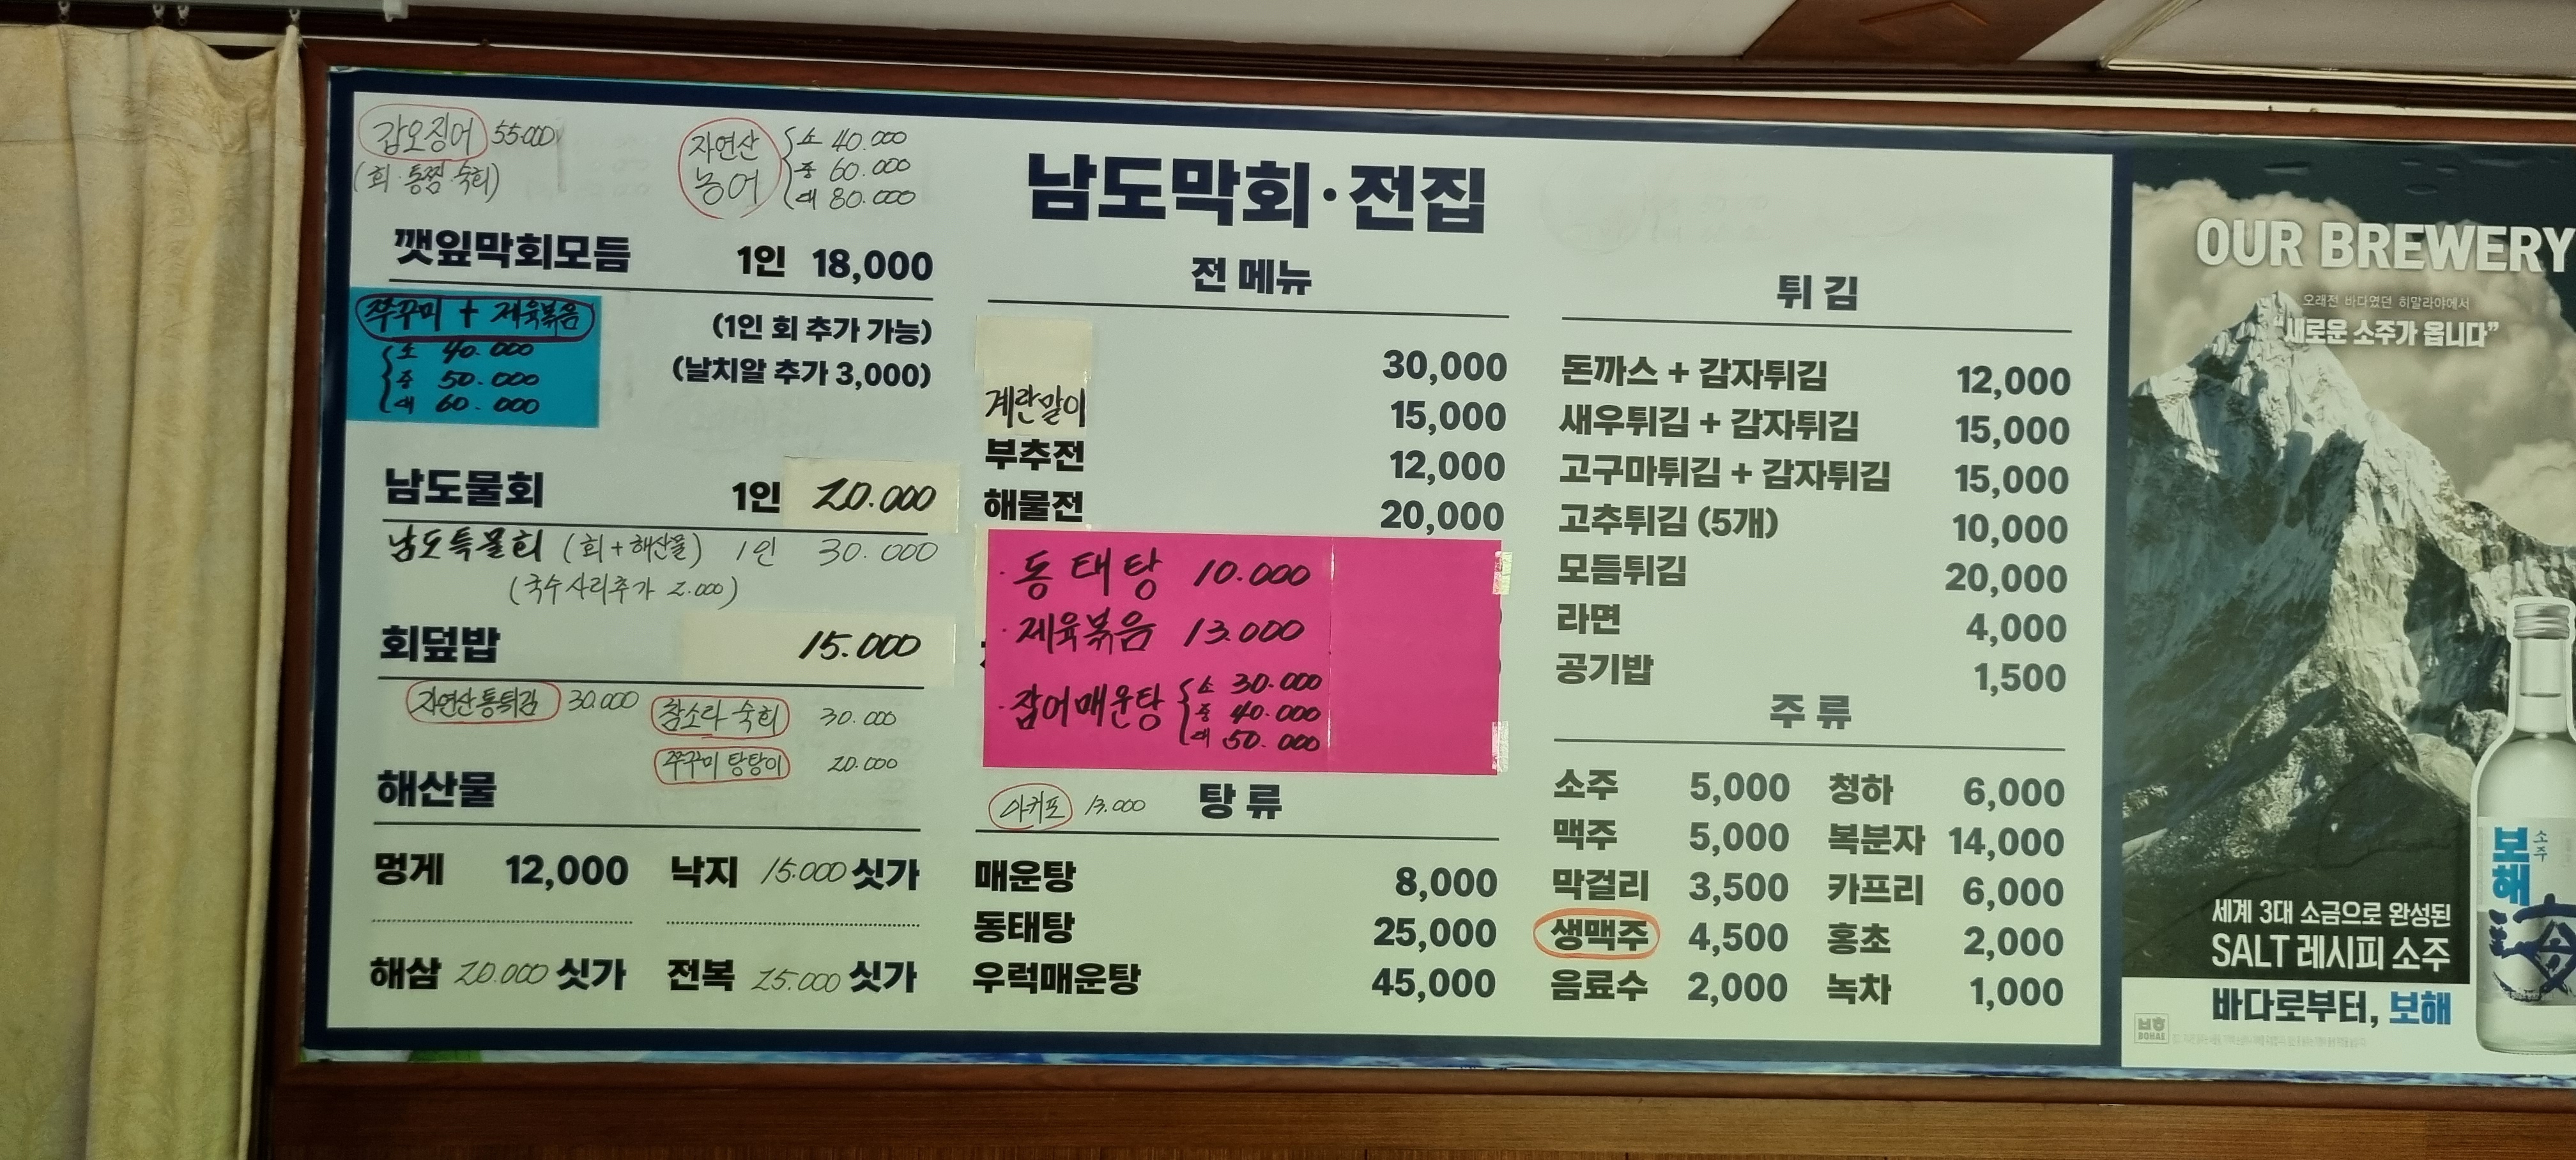 갑오징어 55.000
(회·통찜·숙회)
자연산
농어
소 40.000
중 60.000
대 80.000
깻잎막회모듬 1인 18,000
쭈꾸미 + 제육볶음
소 40.000
중 50.000
대 60.000
(1인 회 추가 가능)
(날치알 추가 3,000)
남도물회 1인 20.000
남도특물회 (회+해산물) 1인 30.000
(국수사리추가 2.000)
회덮밥 15.000
자연산통튀김 30.000
참소라 숙회 30.000
쭈꾸미 탕탕이 20.000
해산물
멍게 12,000 낙지 15.000 싯가
해삼 20.000 싯가 전복 25.000 싯가
남도막회·전집
전 메뉴
30,000
계란말이 15,000
부추전 12,000
해물전 20,000
·동태탕 10.000
·제육볶음 13.000
·잡어매운탕
소 30.000
중 40.000
대 50.000
아귀포 13.000
탕 류
매운탕 8,000
동태탕 25,000
우럭매운탕 45,000
튀 김
돈까스 + 감자튀김 12,000
새우튀김 + 감자튀김 15,000
고구마튀김 + 감자튀김 15,000
고추튀김 (5개) 10,000
모듬튀김 20,000
라면 4,000
공기밥 1,500
주 류
소주 5,000 청하 6,000
맥주 5,000 복분자 14,000
막걸리 3,500 카프리 6,000
생맥주 4,500 홍초 2,000
음료수 2,000 녹차 1,000
OUR BREWERY
오래전 바다였던 히말라야에서
“새로운 소주가 옵니다”
소주
보해
세계 3대 소금으로 완성된
SALT 레시피 소주
바다로부터, 보해
보해
BOHAE